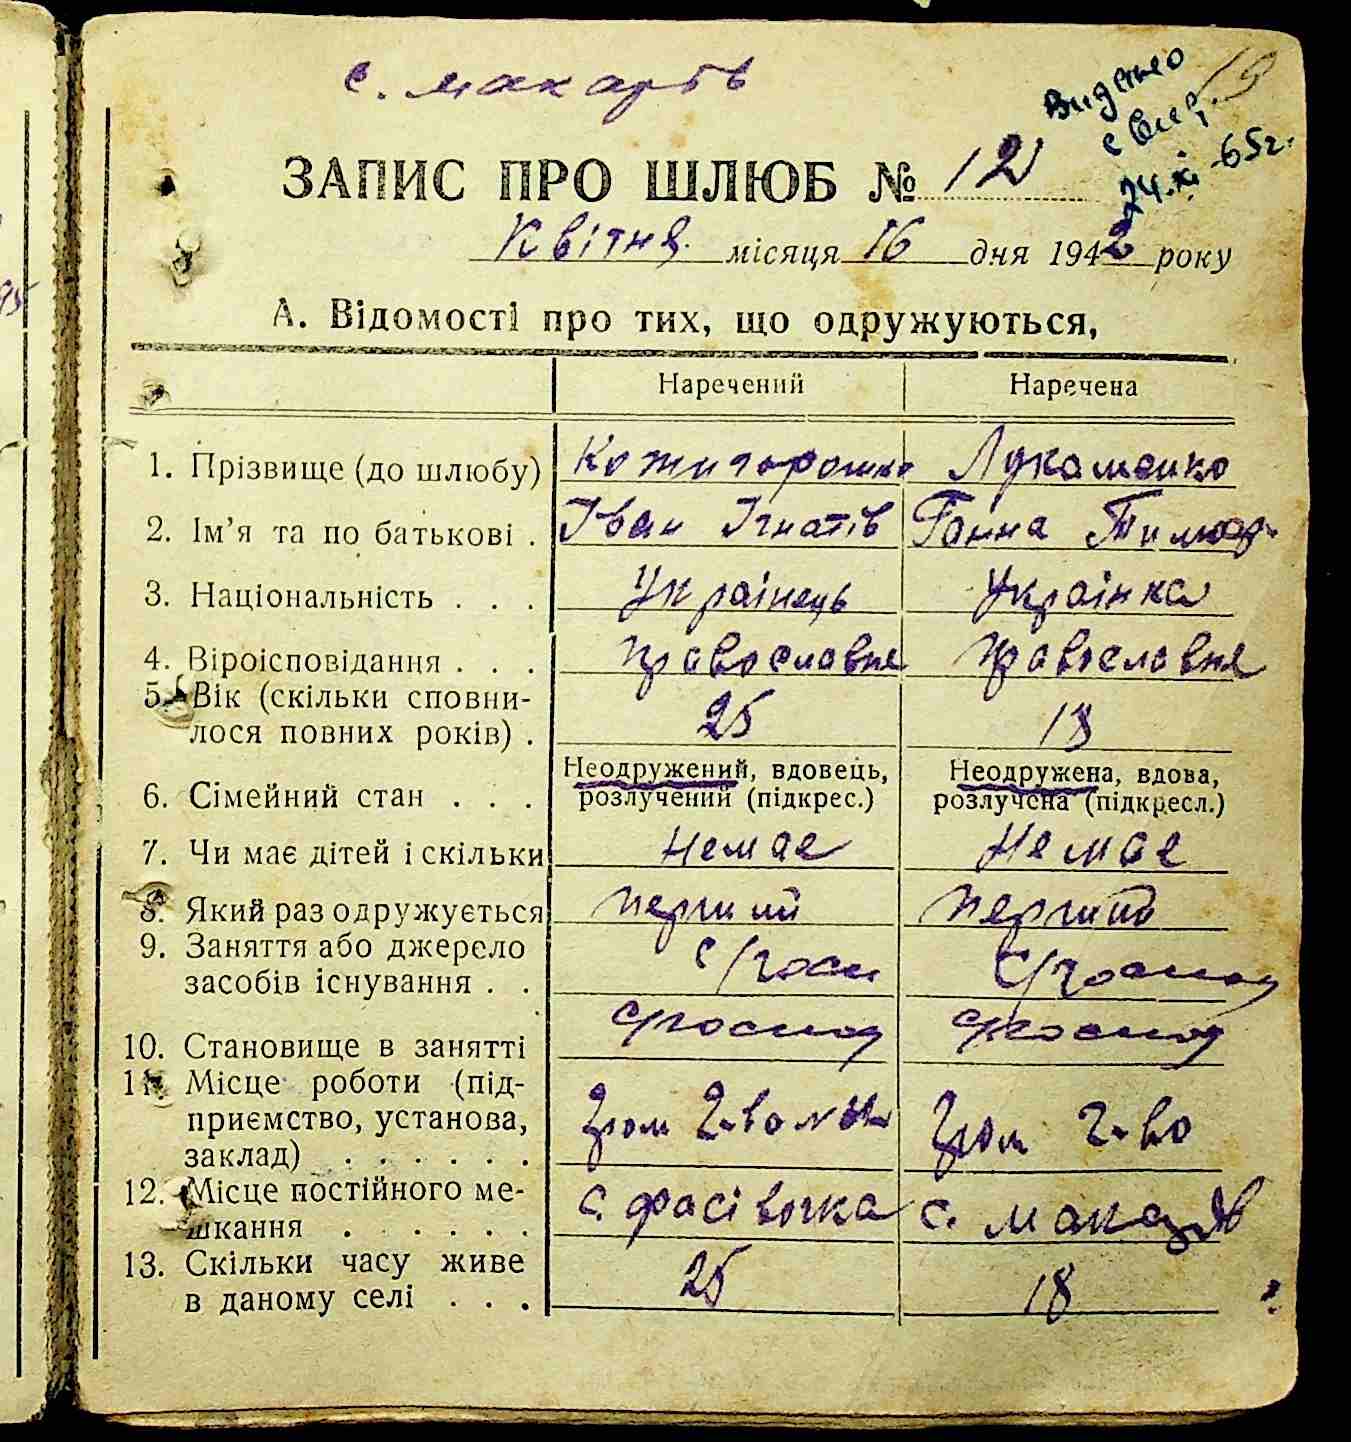 с. макарів
19
Видано
свид.
24.XI-65г.
ЗАПИС ПРО ШЛЮБ № 12
Квітня місяця 16 дня 1942 року
А. Відомості про тих, що одружуються,
Наречений Наречена
1. Прізвище (до шлюбу) Кожигорошко Лукаменко
2. Ім'я та по батькові . Іван Ігнатів Ганна
3. Національність . . . Українець Українка
4. Віроісповідання . . . православне православне
5. Вік (скільки сповни-
лося повних років) . 25 18
6. Сімейний стан . . . Неодружений, вдовець, розлучений (підкрес.) Неодружена, вдова, розлучена (підкресл.)
7. Чи має дітей і скільки Немае Немае
8. Який раз одружується перший перший
9. Заняття або джерело
засобів існування . . с/госп с/господ
10. Становище в занятті с/господ с/господ
11. Місце роботи (під-
приємство, установа,
заклад) . . . . . . гром г-во
12. Місце постійного ме-
шкання . . . . . с. фасівочка с. макарів
13. Скільки часу живе
в даному селі . . . 25 18